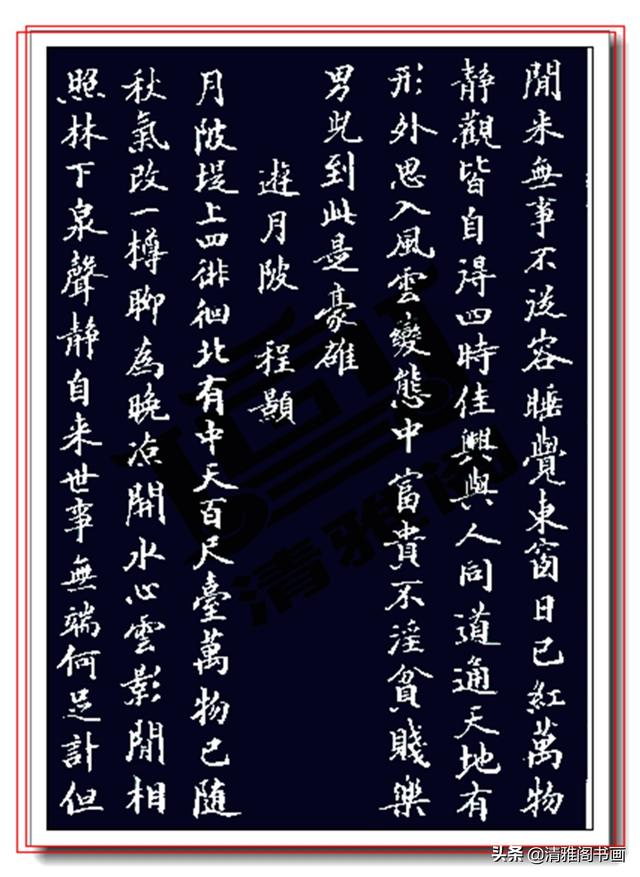 閒来無事不從容睡覺東窗日已紅萬物
靜觀皆自得四時佳興與人同道通天地有
形外思入風雲變態中富貴不淫貧賤樂
男兒到此是豪雄
遊月陂 程顥
月陂堤上四徘徊北有中天百尺臺萬物已隨
秋氣改一樽聊為晚凉開水心雲影閒相
照林下泉聲靜自来世事無端何足計但
清雅阁
头条 @清雅阁书画